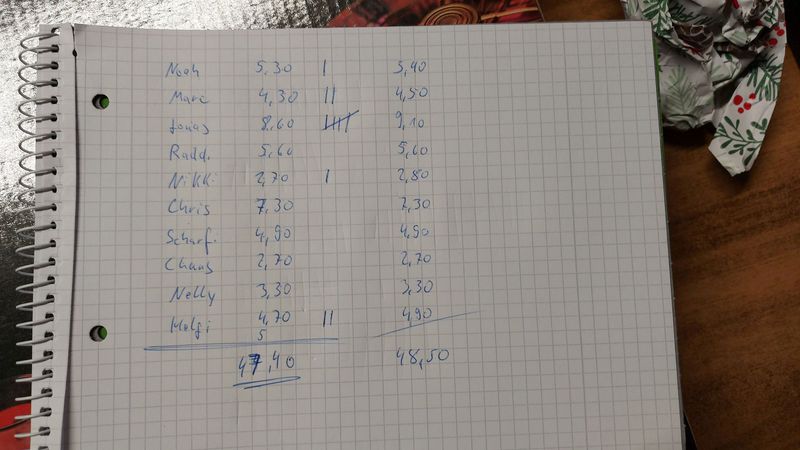 Noah 3,30 | 3,40
Marc 4,30 || 4,50
Jonas 8,60 |||| 9,10
Radd. 5,60 5,60
Nikki 2,70 | 2,80
Chris 7,30 7,30
Scharf. 4,90 4,90
2,70 2,70
Nelly 3,30 3,30
Helgi 4,70 || 4,90
5
47,40 48,50